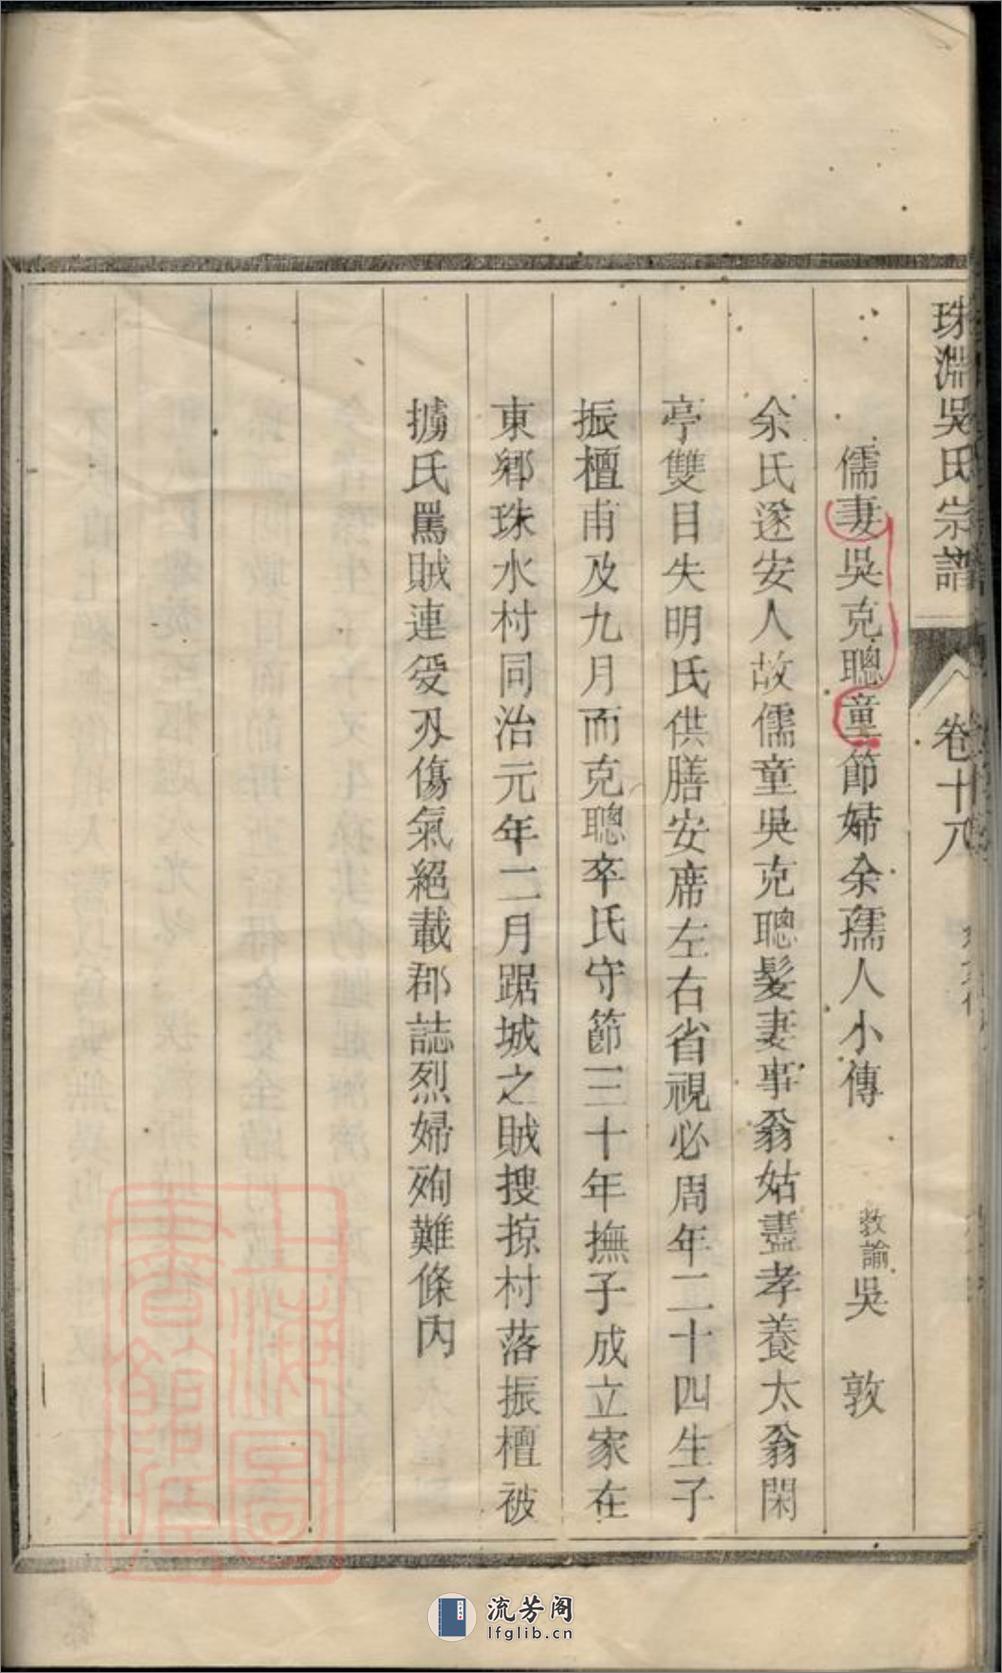 珠淵吳氏宗譜 卷十八
儒妻吳克聰童節婦余孺人小傳 教諭吳 敦
余氏遂安人故儒童吳克聰髮妻事翁姑盡孝養太翁閑
亭雙目失明氏供膳安席左右省視必周年二十四生子
振檀甫及九月而克聰卒氏守節三十年撫子成立家在
東鄉珠水村同治元年二月踞城之賊搜掠村落振檀被
擄氏罵賊連受刃傷氣絕載郡誌烈婦殉難條內
上海圖書館藏
流芳阁
lfglib.cn